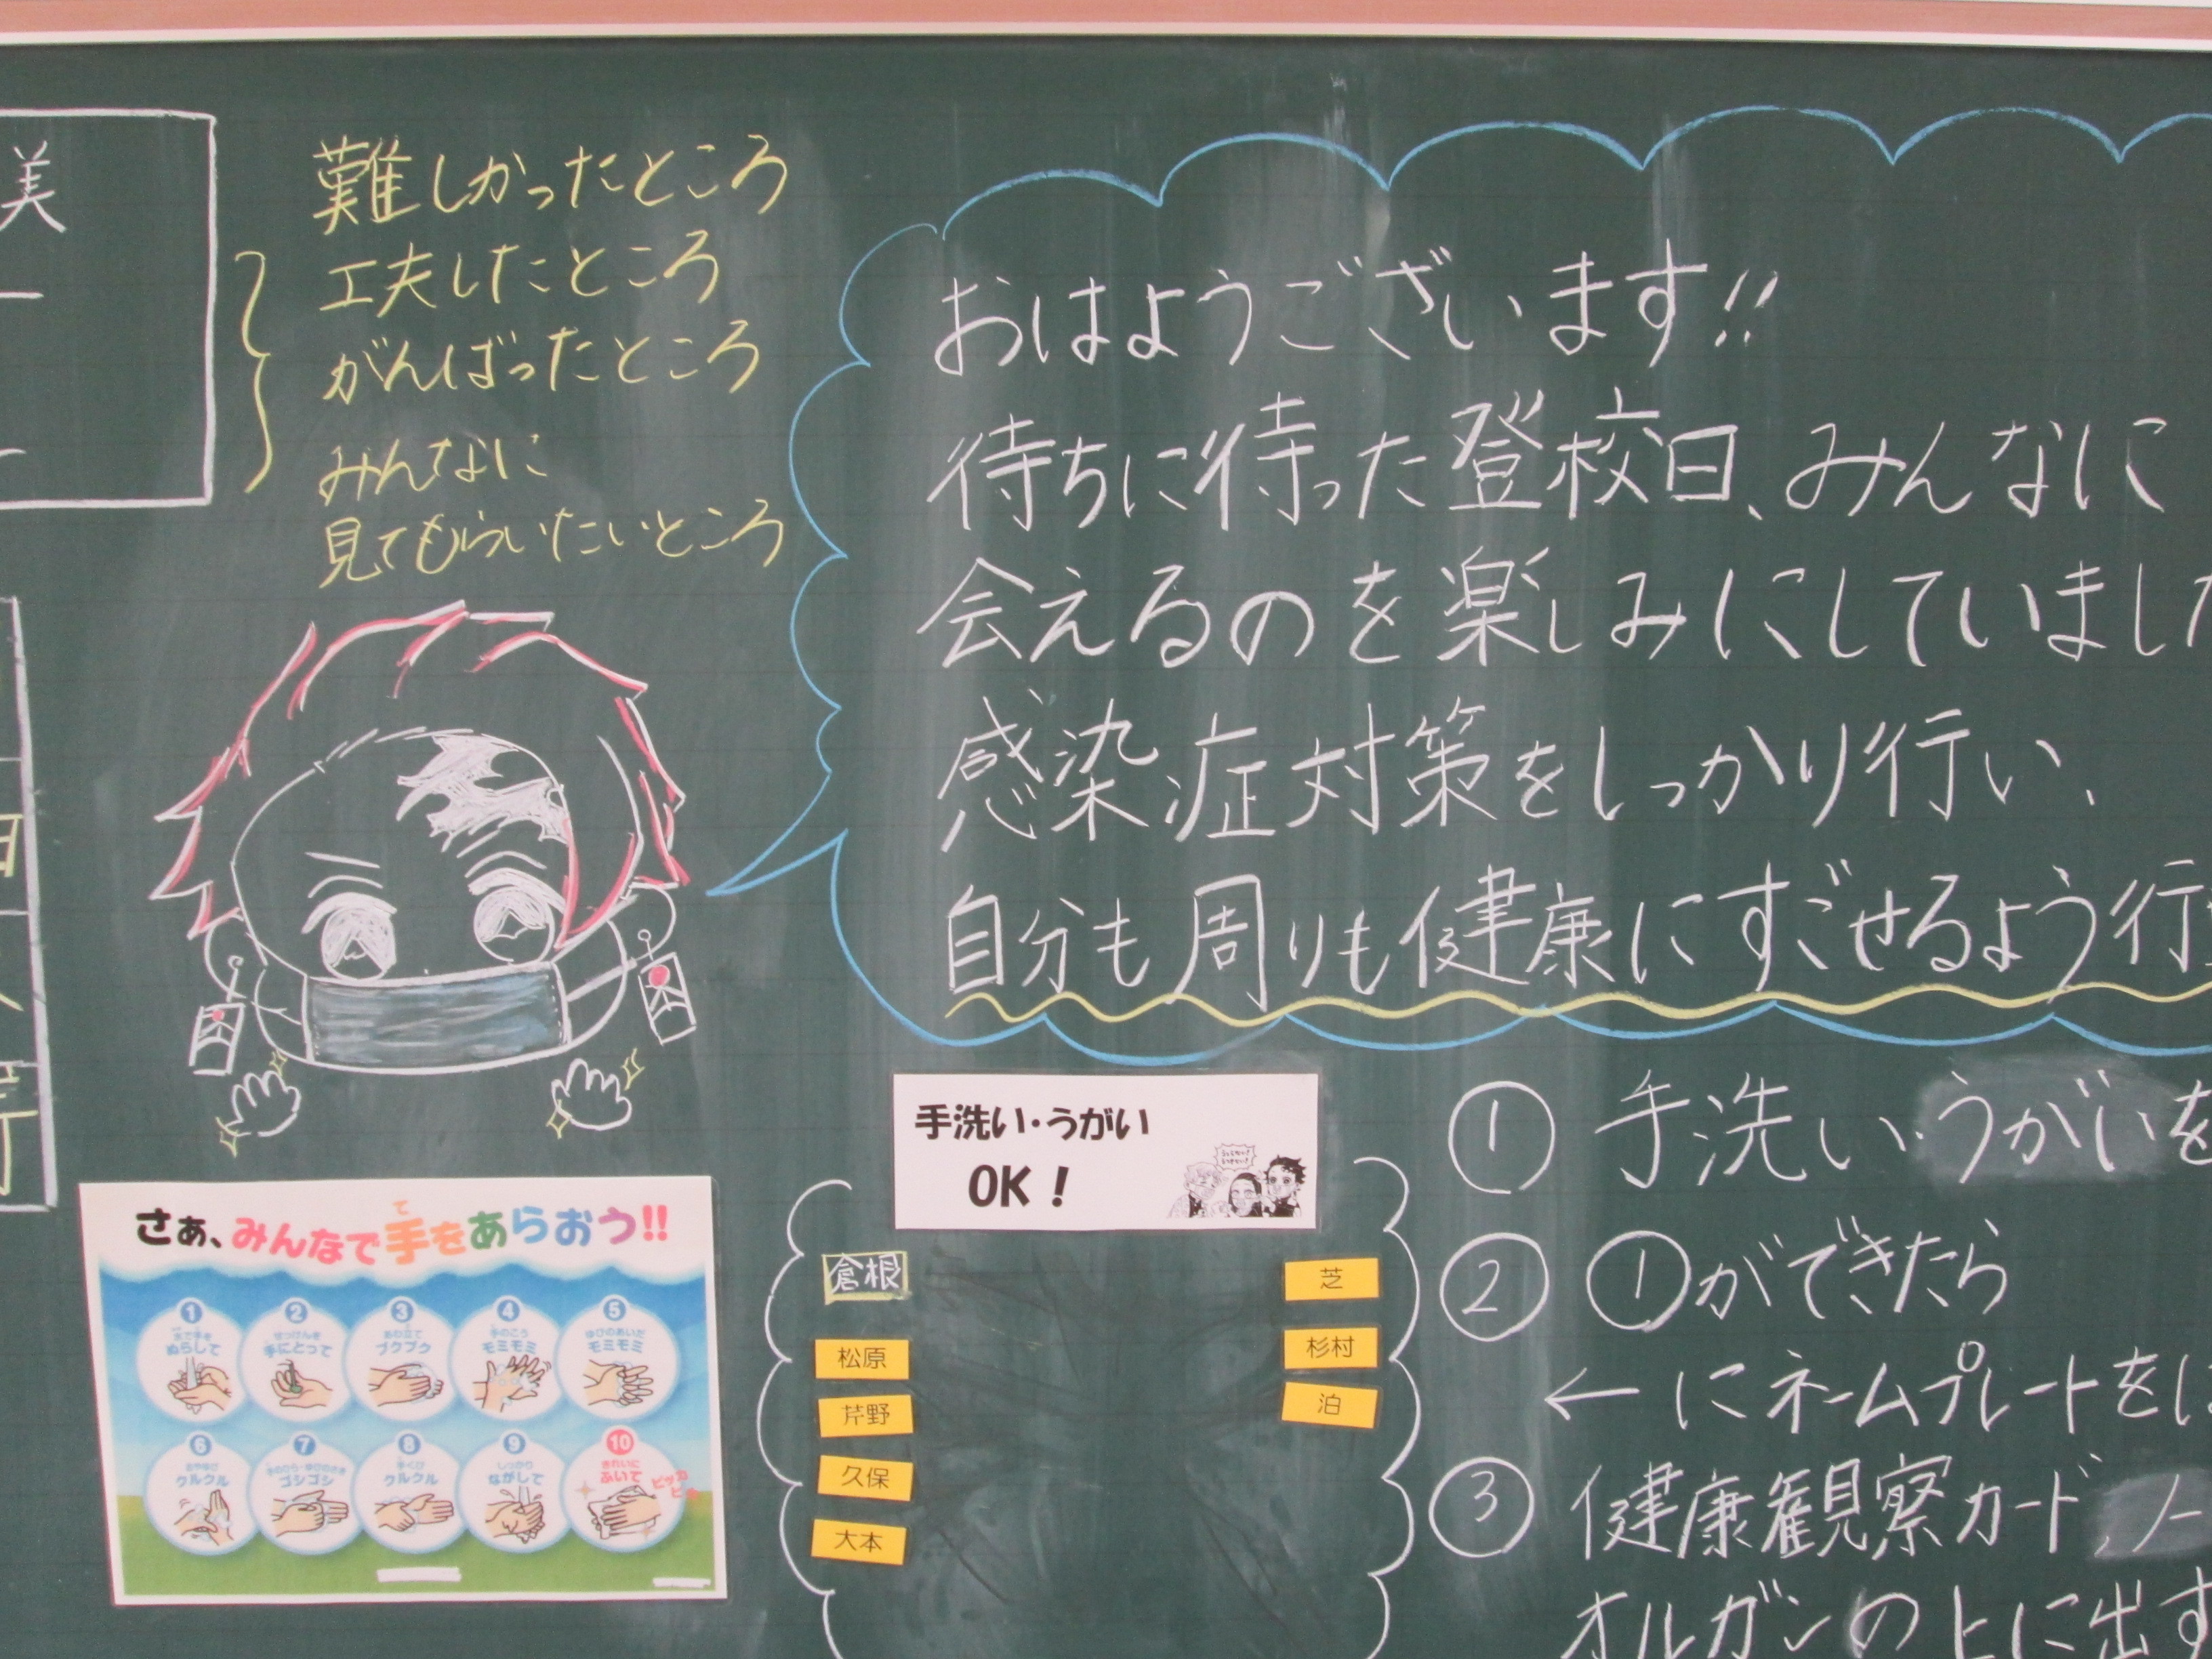 美
難しかったところ
工夫したところ
がんばったところ
みんなに
見てもらいたいところ
おはようございます!!
待ちに待った登校日、みんなに
会えるのを楽しみにしていました
感染症対策をしっかり行い、
自分も周りも健康にすごせるよう行
手洗い・うがい
OK！
倉根
松原
芹野
久保
大本
芝
杉村
泊
① 手洗い・うがいを
② ①ができたら
← にネームプレートをは
③ 健康観察カード、ノー
オルガンの上に出す
さぁ、みんなで手をあらおう!!
て
1 水で手を ぬらして
2 せっけんを 手にとって
3 あわ立て ブクブク
4 手のこう モミモミ
5 ゆびのあいだ モミモミ
6 おやゆび クルクル
7 手のひら・ゆびのさき ゴシゴシ
8 手くび クルクル
9 しっかり ながして
10 きれいに ふいて
ピッカ